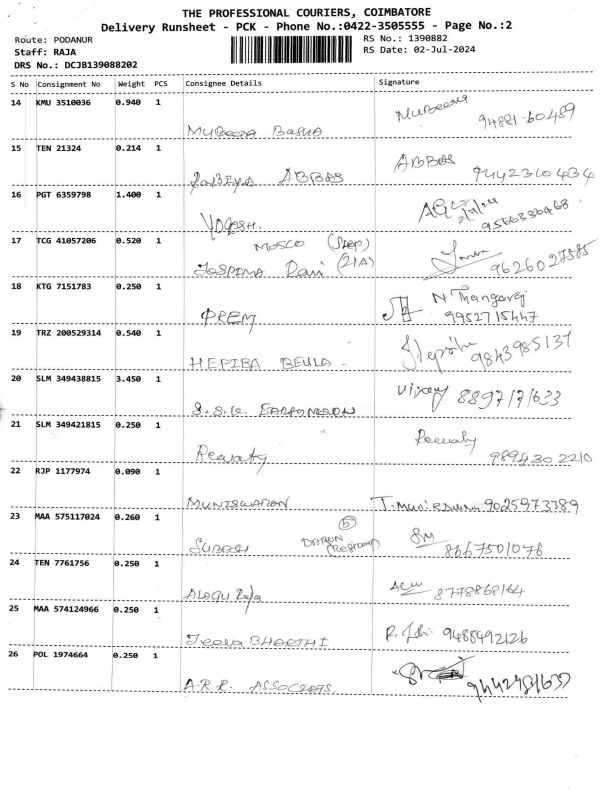 THE PROFESSIONAL COURIERS, COIMBATORE
Delivery Runsheet - PCK - Phone No.:0422-3505555 - Page No.:2
Route: PODANUR RS No.: 1390882
Staff: RAJA RS Date: 02-Jul-2024
DRS No.: DCJB139088202
S No Consignment No Weight PCS Consignee Details Signature
14 KMU 3510036 0.940 1
MUBEENA BASHA 94881-60489
15 TEN 21324 0.214 1 ABBAS
ABBAS 9442310434
16 PGT 6359798 1.400 1
YOGESH. 9566336468
17 TCG 41057206 0.520 1 MOSCO
JOSPINA Rani (21A) 9626027585
18 KTG 7151783 0.250 1 N Thangaraj
PREM 9952715447
19 TRZ 200529314 0.540 1
HEPIBA BEULA 9843985137
20 SLM 349438815 3.450 1 8897171633
S.S.K.
21 SLM 349421815 0.250 1
Revathy 9894302210
22 RJP 1177974 0.090 1
MUNISWARAN T. 9025973389
23 MAA 575117024 0.260 1 5
8667501076
24 TEN 7761756 0.250 1
Alagu Raja 8778868164
25 MAA 574124966 0.250 1
BHARTHI 9488492126
26 POL 1974664 0.250 1
A.R.R.